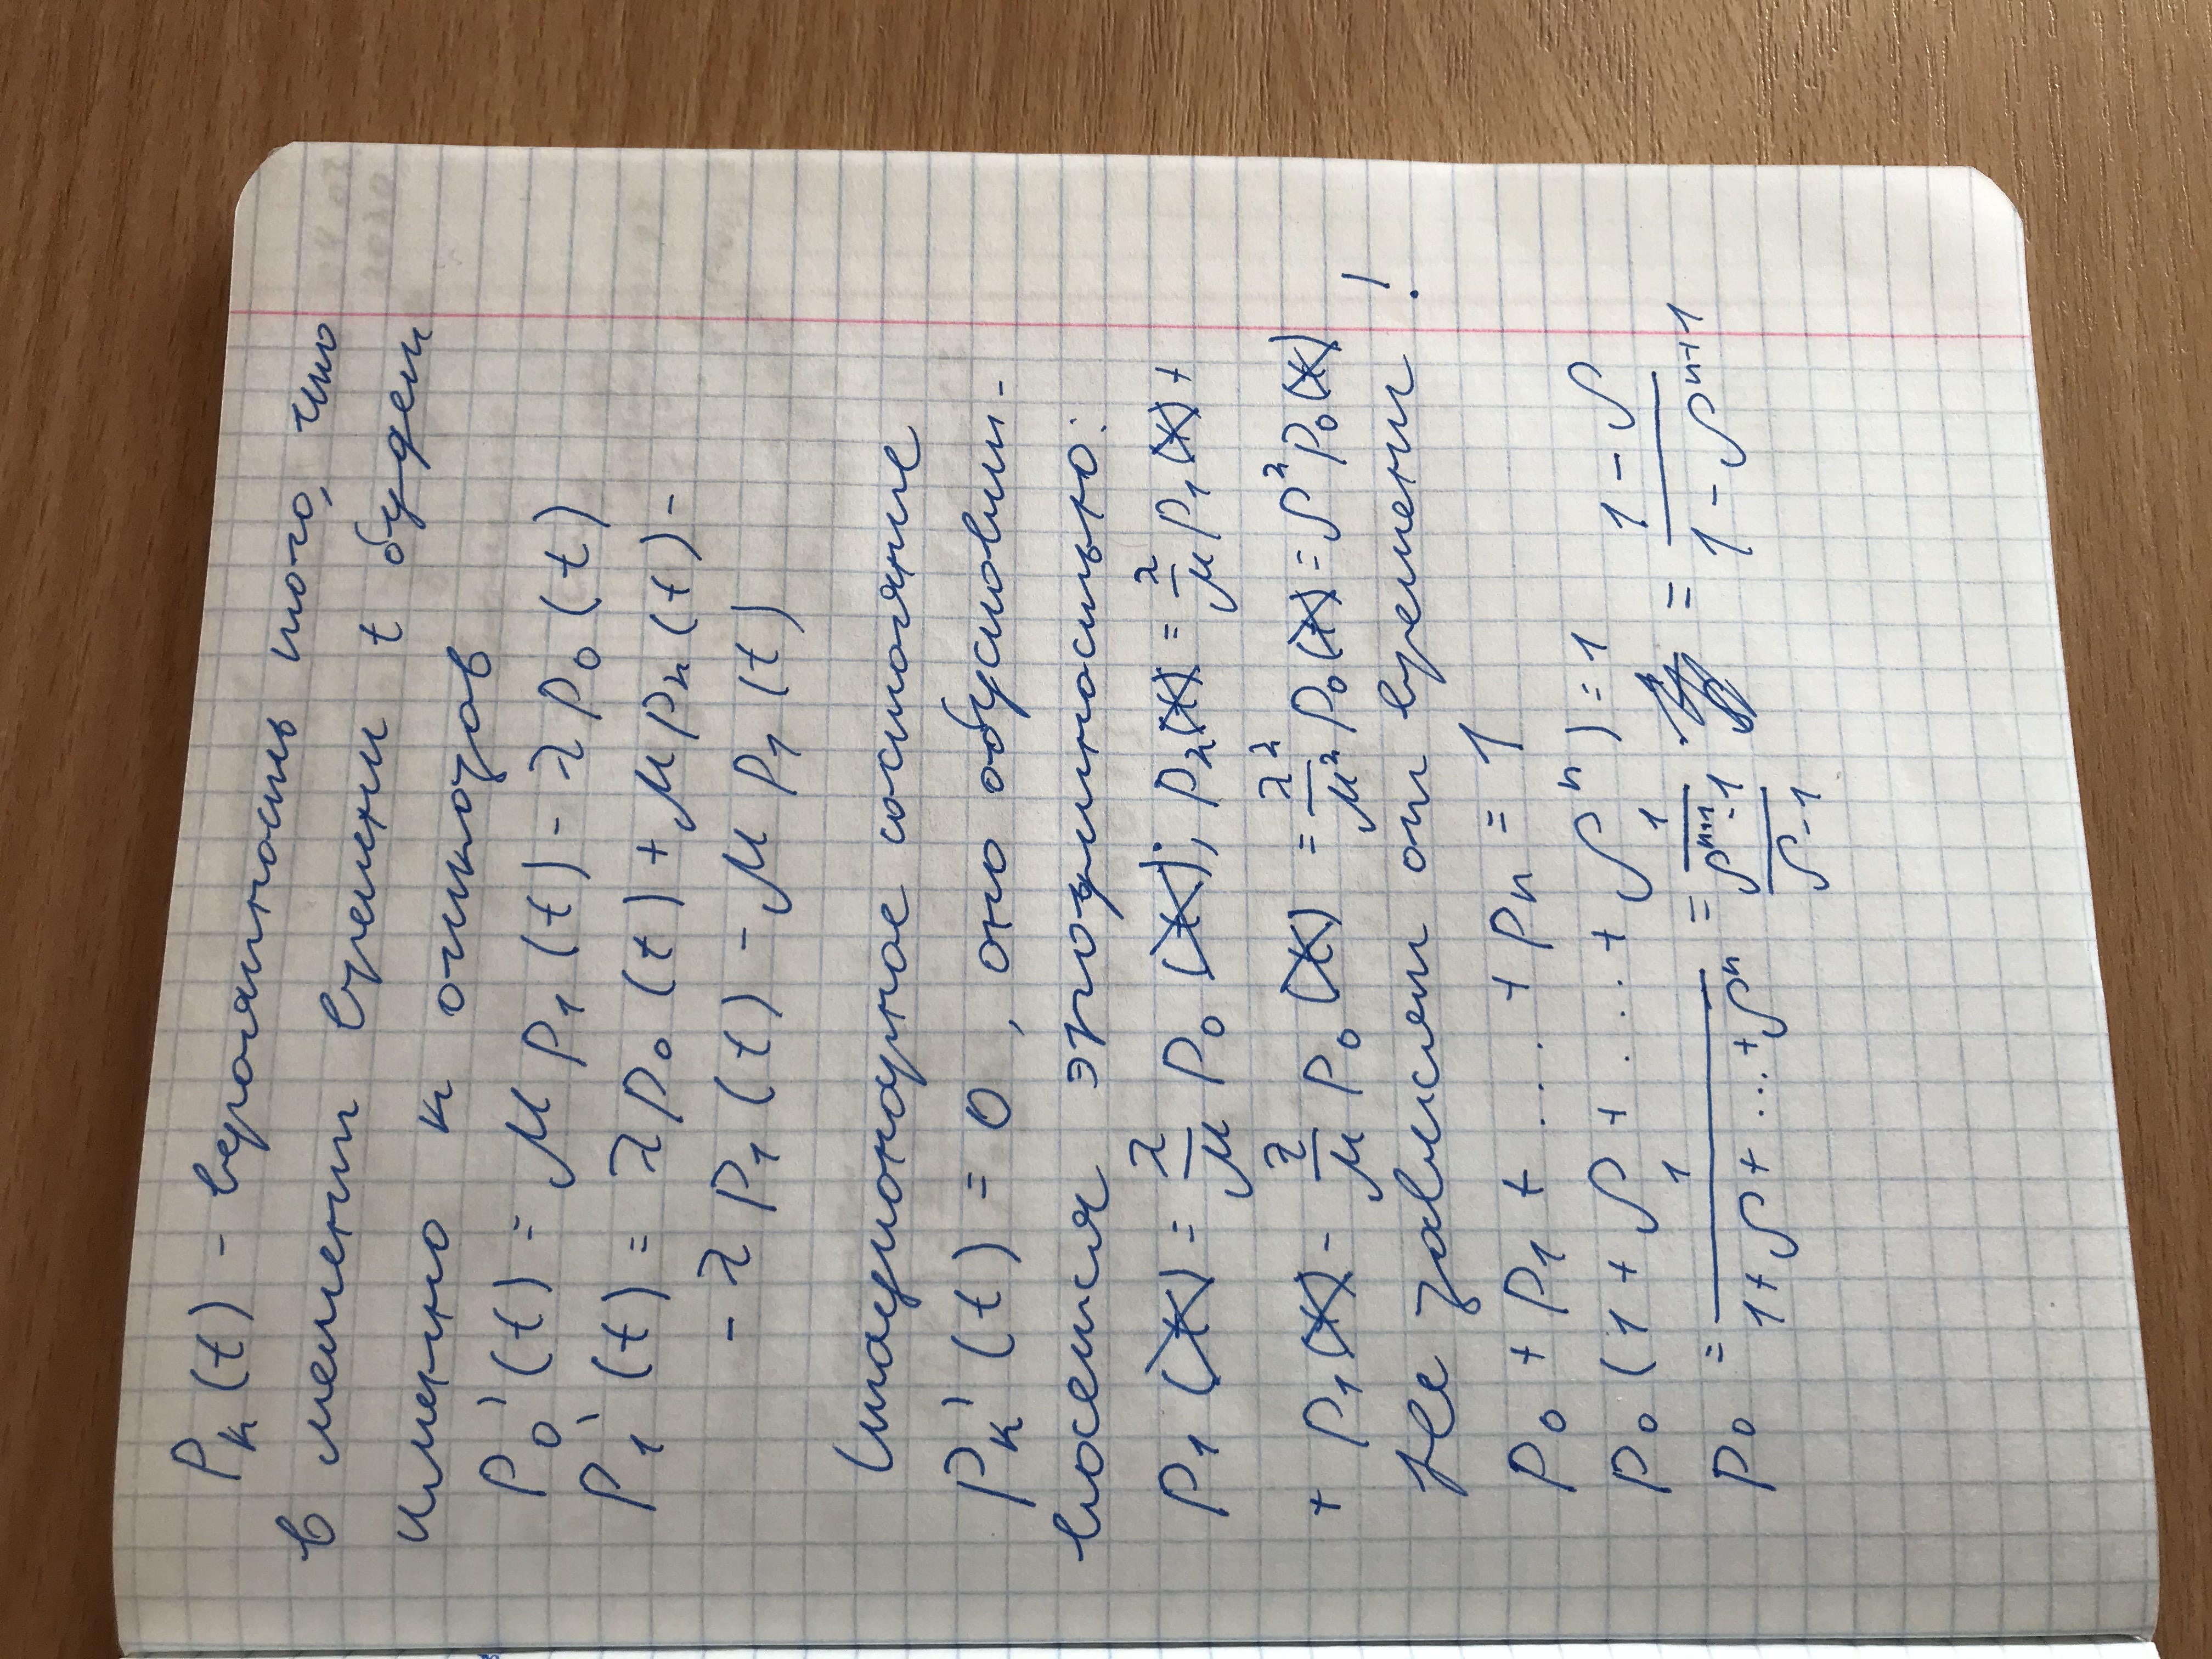 P_k(t) - вероятность того, что
в момент времени t будет
именно k отказов
P_0'(t) = μ p_1(t) - λ p_0(t)
P_1'(t) = λ p_0(t) + μ p_2(t) -
- λ p_1(t) - μ p_1(t)
Стационарное состояние
p_k'(t) = 0, оно обуславли-
вается эргодичностью:
p_1(t) = λ/μ p_0(t); p_2(t) = λ/μ p_1(t) +
+ p_1(t) - λ/μ p_0(t) = λ²/μ² p_0(t) = ρ² p_0(t)
Не зависят от времени!
p_0 + p_1 + ... + p_n = 1
p_0 (1 + ρ + ... + ρ^n) = 1
p_0 = 1/(1 + ρ + ... + ρ^n) = 1/((ρ^(n+1) - 1)/(ρ - 1)) = (1 - ρ)/(1 - ρ^(n+1))